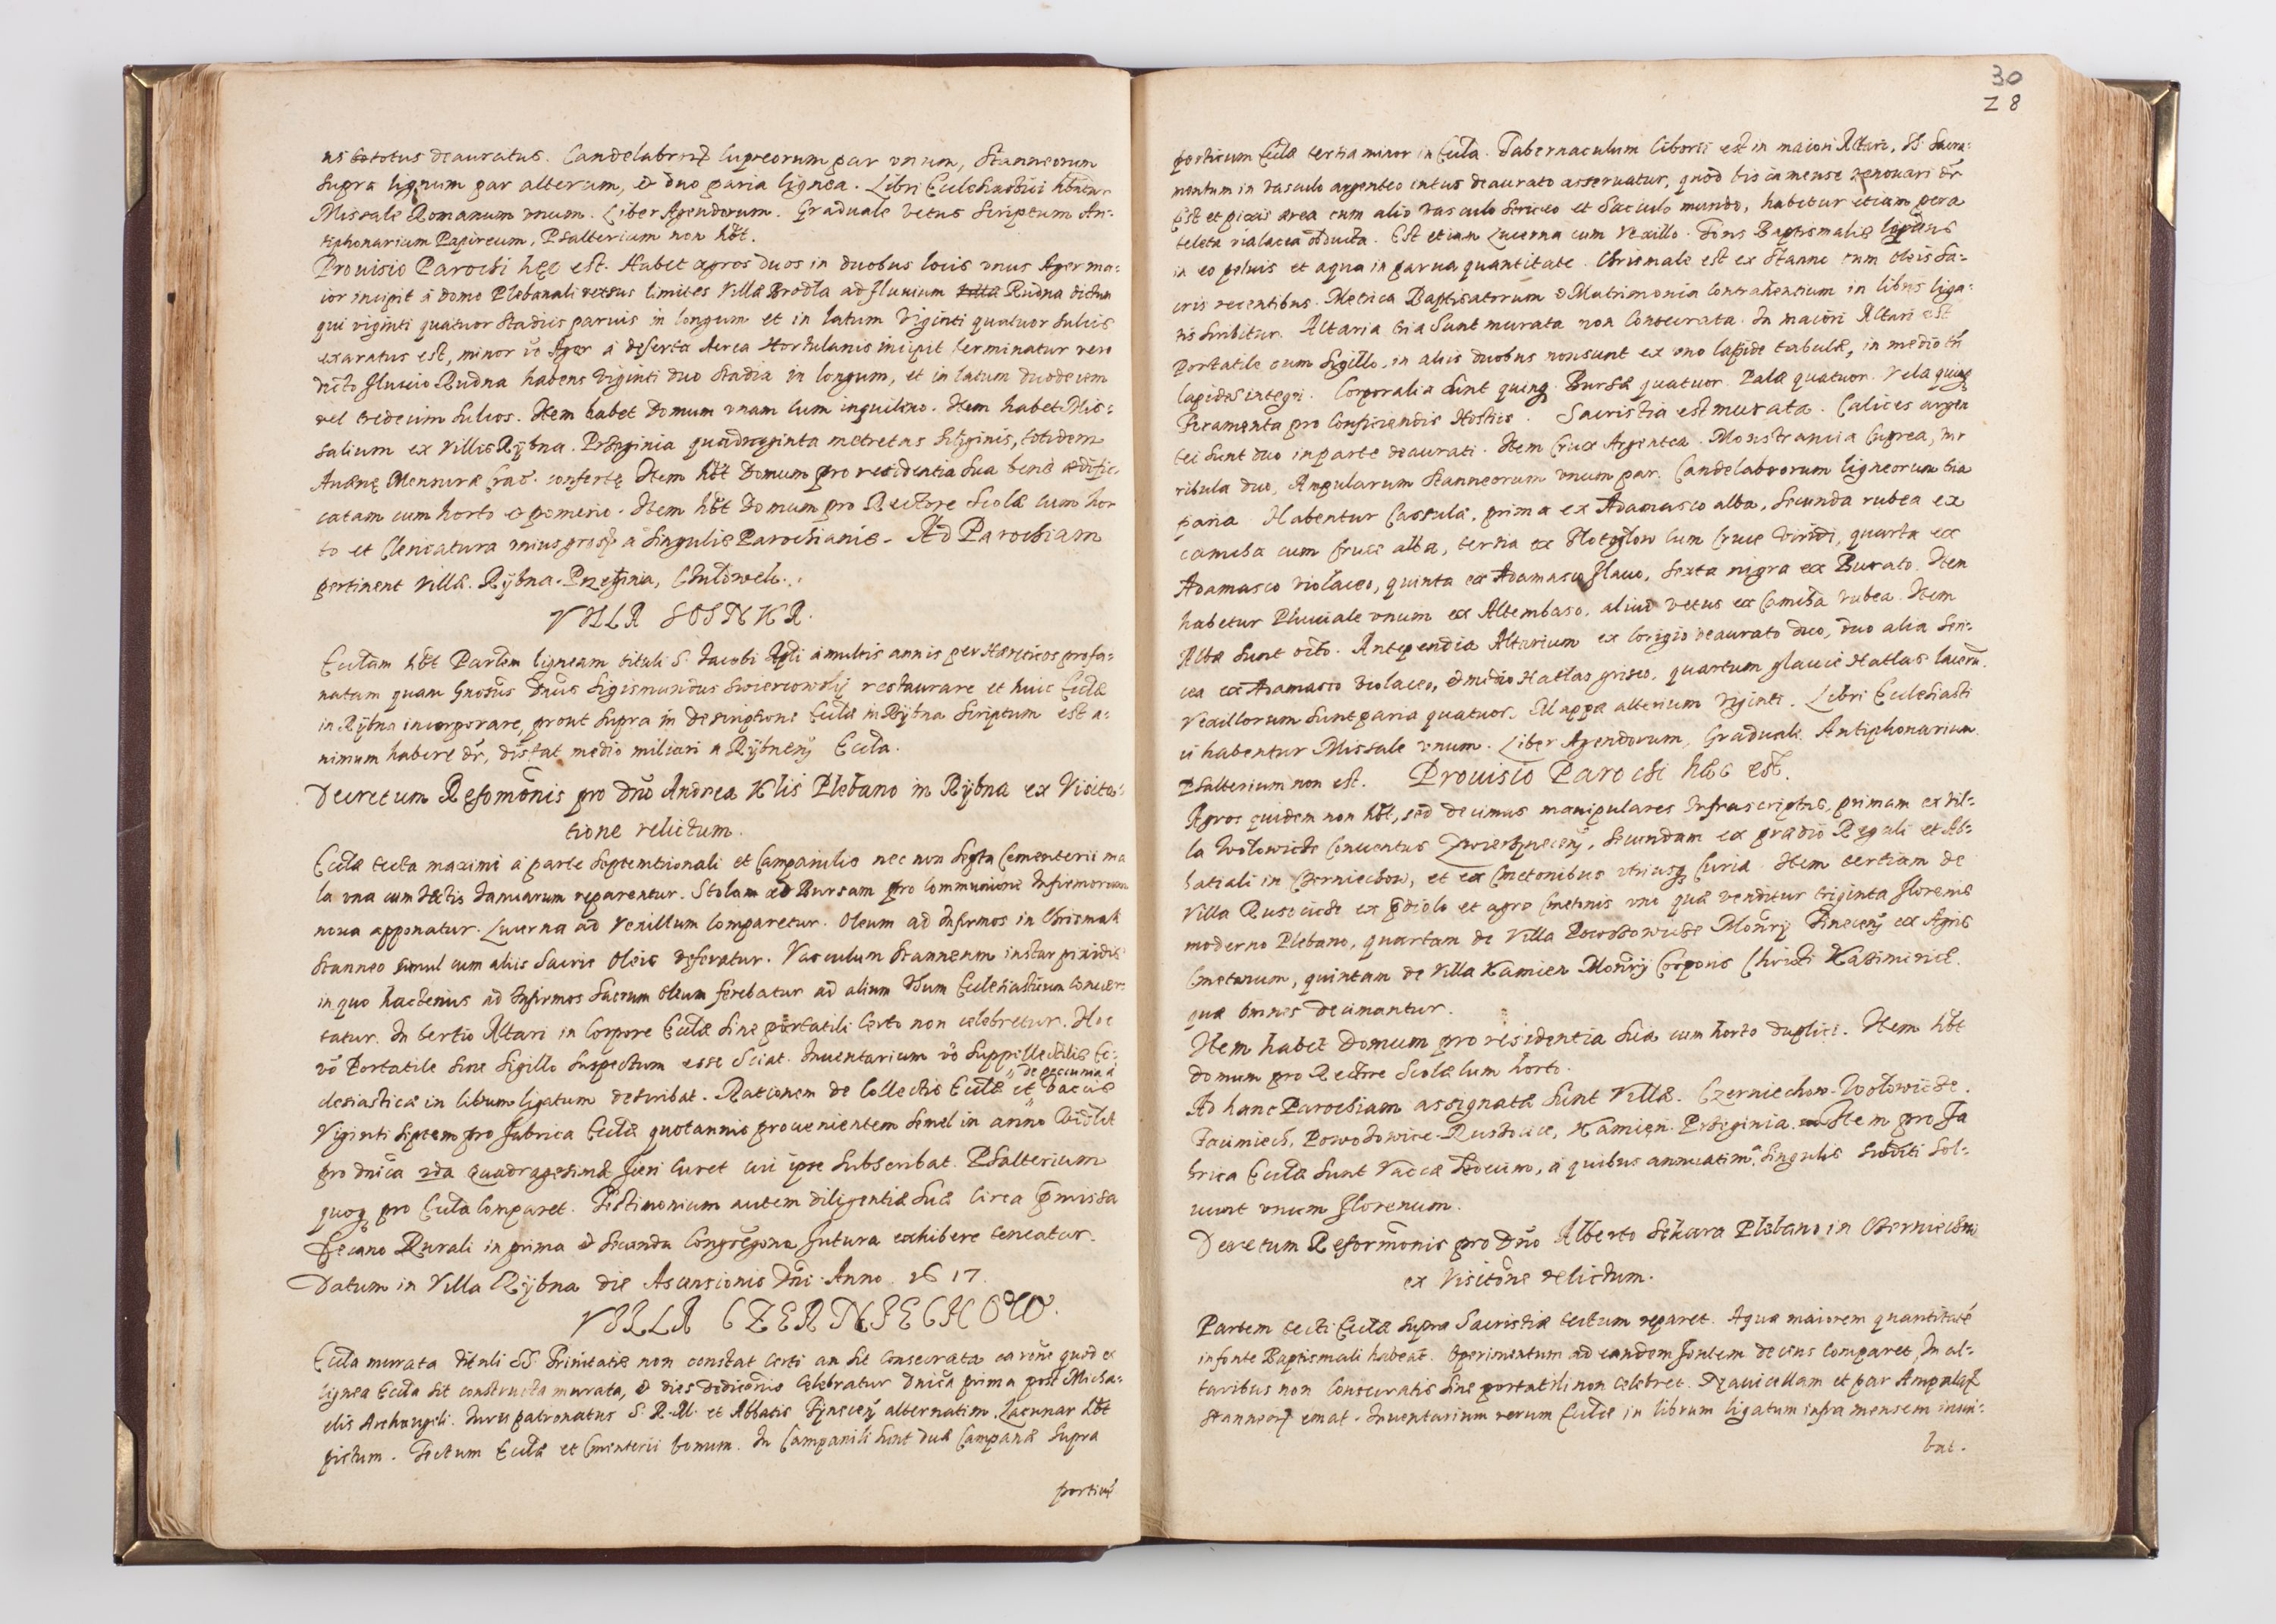 us totus deauratus. Candelabror̃ Cupreorum par vnum, Stanneorum
supra lignum par alterum, et duo paria lignea. Libri Ecclesiastici hñtur
Missale Romanum vnum. Liber Agendorum. Graduale vetus scriptum An-
tiphonarium Papireum, Psalterium non hẽt.
Prouisio Parochi hęc est. Habet agros duos in duobus locis vnus Ager ma-
ior incipit à domo Plebanali versus limites Villæ Brodla ad fluuium Rudna dictum
qui viginti quatuor stadiis paruis in longum et in latum viginti quatuor sulcis
exaratus est, minor v̊o Ager à deserta Aerea Hortulanis incipit terminatur vero
dicto fluuio Rudna habens viginti duo stadia in longum, et in latum duodecim
vel tredecim sulcos. Item habet Domum vnam cum inquilino. Item habet Mis-
salium ex villis Rÿbna. Przeginia quadraginta metretas siliginis, totidem
Auenę Mensuræ Crac. confertę Item hẽt Domum pro residentia sua bene ædifi-
catam cum horto et pomerio. Item hẽt domum pro Rectore Scolæ cum hor
to et Clericatura vnius grossi à singulis Parochianis. Ad Parochiam
pertinent Villæ. Rÿbna. Przeginia, Chulowek.
VILLA SOSNKA.
Eccłam hẽt Paruam ligneam tituli S. Jacobi Apli à multis annis per Hæreticos profa-
natam quam Gnosus Dñus Sigismundus Swiercowskÿ restaurare et huic Eccłæ
in Rÿbna incorporare, prout supra in descriptione Eccłæ in Rÿbna scriptum est a-
nimum habere dr̃, distat medio miliari a Rÿbnenÿ Eccła.
Decretum Refomõnis pro Dño Andrea Klis Plebano in Rÿbna ex Visita-
tione relictum.
Eccłæ tecta maximè à parte septemtrionali et Campanilis nec non septa Cementerii ma
la vna cum tectis Januarum reparentur. Stolam ad Bursam pro Communione Infirmorum
noua apponatur. Lucerna ad Vexillum comparetur. Oleum ad Infirmos in Chrismali
stanneo simul cum aliis sacris Oleis deferatur. Vasculum stanneum instar pixidis
in quo hactenus ad Infirmos sacrum oleum ferebatur ad alium Vsum Ecclesiasticum conuer-
tatur. In tertio Altari in Corpore Eccłæ sine portatili certo non celebretur. Hoc
v̊o Portatile sine sigillo suspectum esse sciat. Inuentarium v̊o suppellectilis Ec-
clesiasticæ in librum ligatum describat. Rationem de Collectis Eccłæ et de pecunia à vaccis
Viginti septem pro fabrica Eccłæ quotannis prouenientem semel in anno Videlt
pro dñica 2da Quadragesimæ fieri curet cui ipse subscribat. Psalterium
quoq pro Eccła comparet. Testimonium autem diligentiæ suæ circa p̃missa
Decano Rurali in prima et secunda Congregõne futura exhibere teneatur.
Datum in Villa Rÿbna die Ascensionis Dñi. Anno 1617.
VILLA CZERNIECHOW.
Eccła murata tituli SS. Trinitatis non constat certi an sit consecrata ea rõne quod ex
lignea Eccła sit constructa murata, et dies dedicõnis celebratur dñica prima post Micha-
elis Archangeli. Juris patronatus S. R. M. et Abbatis Tÿnecenÿ alternatim. Lacunar hẽt
pictum. Tectum Eccłæ et Cmenterii bonum. In Campanili sunt duæ Campanæ supra
porticũ
30
28
porticum Eccłæ tertia minor in Eccła. Tabernaculum Ciborii est in maiori Altari, SS. Sacra-
mentum in vasculo argenteo intus deaurato asseruatur, quod bis in mense renouari dr̃
Est et pixis ærea cum alio vasculo sericeo et sacculo mundo, habetur etiam pera
teleta violacea obducta. Est etiam Lucerna cum Vexillo. Fons Baptismalis lapideus
in eo peluis et aqua in parua quantitate. Chrismale est ex stanno cum oleis sa-
cris recentibus. Metrica Baptisatorum et Matrimonia contrahentium in libris liga-
tis scribitur. Altaria tria sunt murata non consecrata. In maiori Altari est
Portatile cum sigillo, in aliis duobus non sunt ex vno lapide tabulæ, in medio tñ
lapides integri. Corporalia sunt quinq. Bursæ quatuor. Palæ quatuor. Vela quinq
Feramenta pro conficiendis Hostiis. Sacristia est murata. Calices argen
tei sunt duo in parte deaurati. Item Crux Argentea. Monstrancia Cuprea, tur
ribula duo, Ampularum stannearum vnum par. Candelabrorum ligneorum tria
paria. Habentur Casulæ, prima ex Adamasco alba, secunda rubea ex
camcha cum cruce alba, tertia ex Slotogłow cum cruce viridi, quarta ex
Adamasco violaceo, quinta ex Adamasco flauo, sexta nigra ex Burato. Item
habetur Pluuiale vnum ex Altembaso, aliud vetus ex camcha rubea. Item
Albæ sunt octo. Antependia Altarium ex corigio deaurato duo, duo alia seri-
cea ex Adamasco violaceo, et medio Hatlas griseo, quartum glauci Hatlas lacerũ.
Vexillorum sunt paria quatuor. Mappæ altarium viginti. Libri Ecclesiasti
ci habentur Missale vnum. Liber Agendorum, Graduale. Antiphonarium
Psalterium non est. Prouisio Parochi hæc est.
Agros quidem non hẽt, sed decimas manipulares Infrascriptas, primam ex vil-
la Wołowice Conuentus Zwierzÿnecenÿ, secundam ex prædio Regali et Ab-
batiali in Czerniechow, et ex Cmetonibus vtriusq Curiæ. Item tertiam de
Villa Rusocice ex p̃diolo et agro Cmetonis vno quæ venditur triginta florenis
moderno Plebano, quartam de Villa Powodowice Monrÿ Tinecenÿ ex Agris
Cmetonum, quintam de Villa Kamien Monrÿ Corporis Christi Kazimiriæ.
quæ omnes decimantur.
Item habet Domum pro residentia sua cum horto duplici. Item hẽt
domum pro Rectore Scolæ cum horto.
Ad hanc Parochiam assignatæ sunt Villæ. Czerniechow. Wołowice.
Facimiech, Powodowice. Rusocice, Kamien. Przeginia. Item pro fa
brica Eccłæ sunt Vaccæ sedecim, à quibus annuatim singulis subditi sol-
uunt vnum florenum.
Decretum Reformõnis pro Dño Alberto Sekara Plebano in Czerniechow
ex Visitõne relictum.
Partem tecti Eccłæ supra Sacristiæ tectum reparet. Aquæ maiorem quantitatẽ
in fonte Baptismali habeat. Operimentum ad eandem fontem decens comparet, In al-
taribus non consecratis sine portatili non celebret. Nauicellam et par Ampular̃
stannear̃ emat. Inuentarium rerum Eccłæ in librum ligatum infra mensem inscri-
bat.